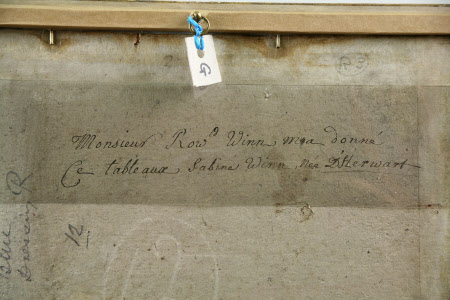 G
Monsieur Row^d Winn m'a donné
Ce tableaux Sabine Winn Née D'Herwart
12
Blue